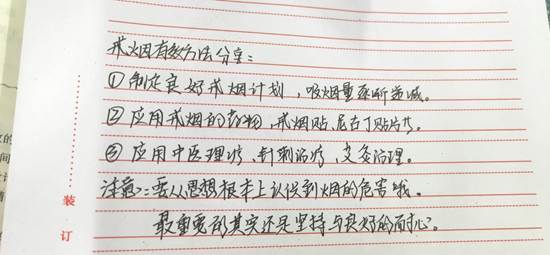 戒烟有效方法分享：
①制定良好戒烟计划，吸烟量逐渐递减。
②应用戒烟的药物，戒烟贴、尼古丁贴片等。
③应用中医理疗、针刺治疗、艾灸治理。
注意：要从思想根本上认识到烟的危害哦。
最重要的其实还是坚持与良好的耐心。
装
订